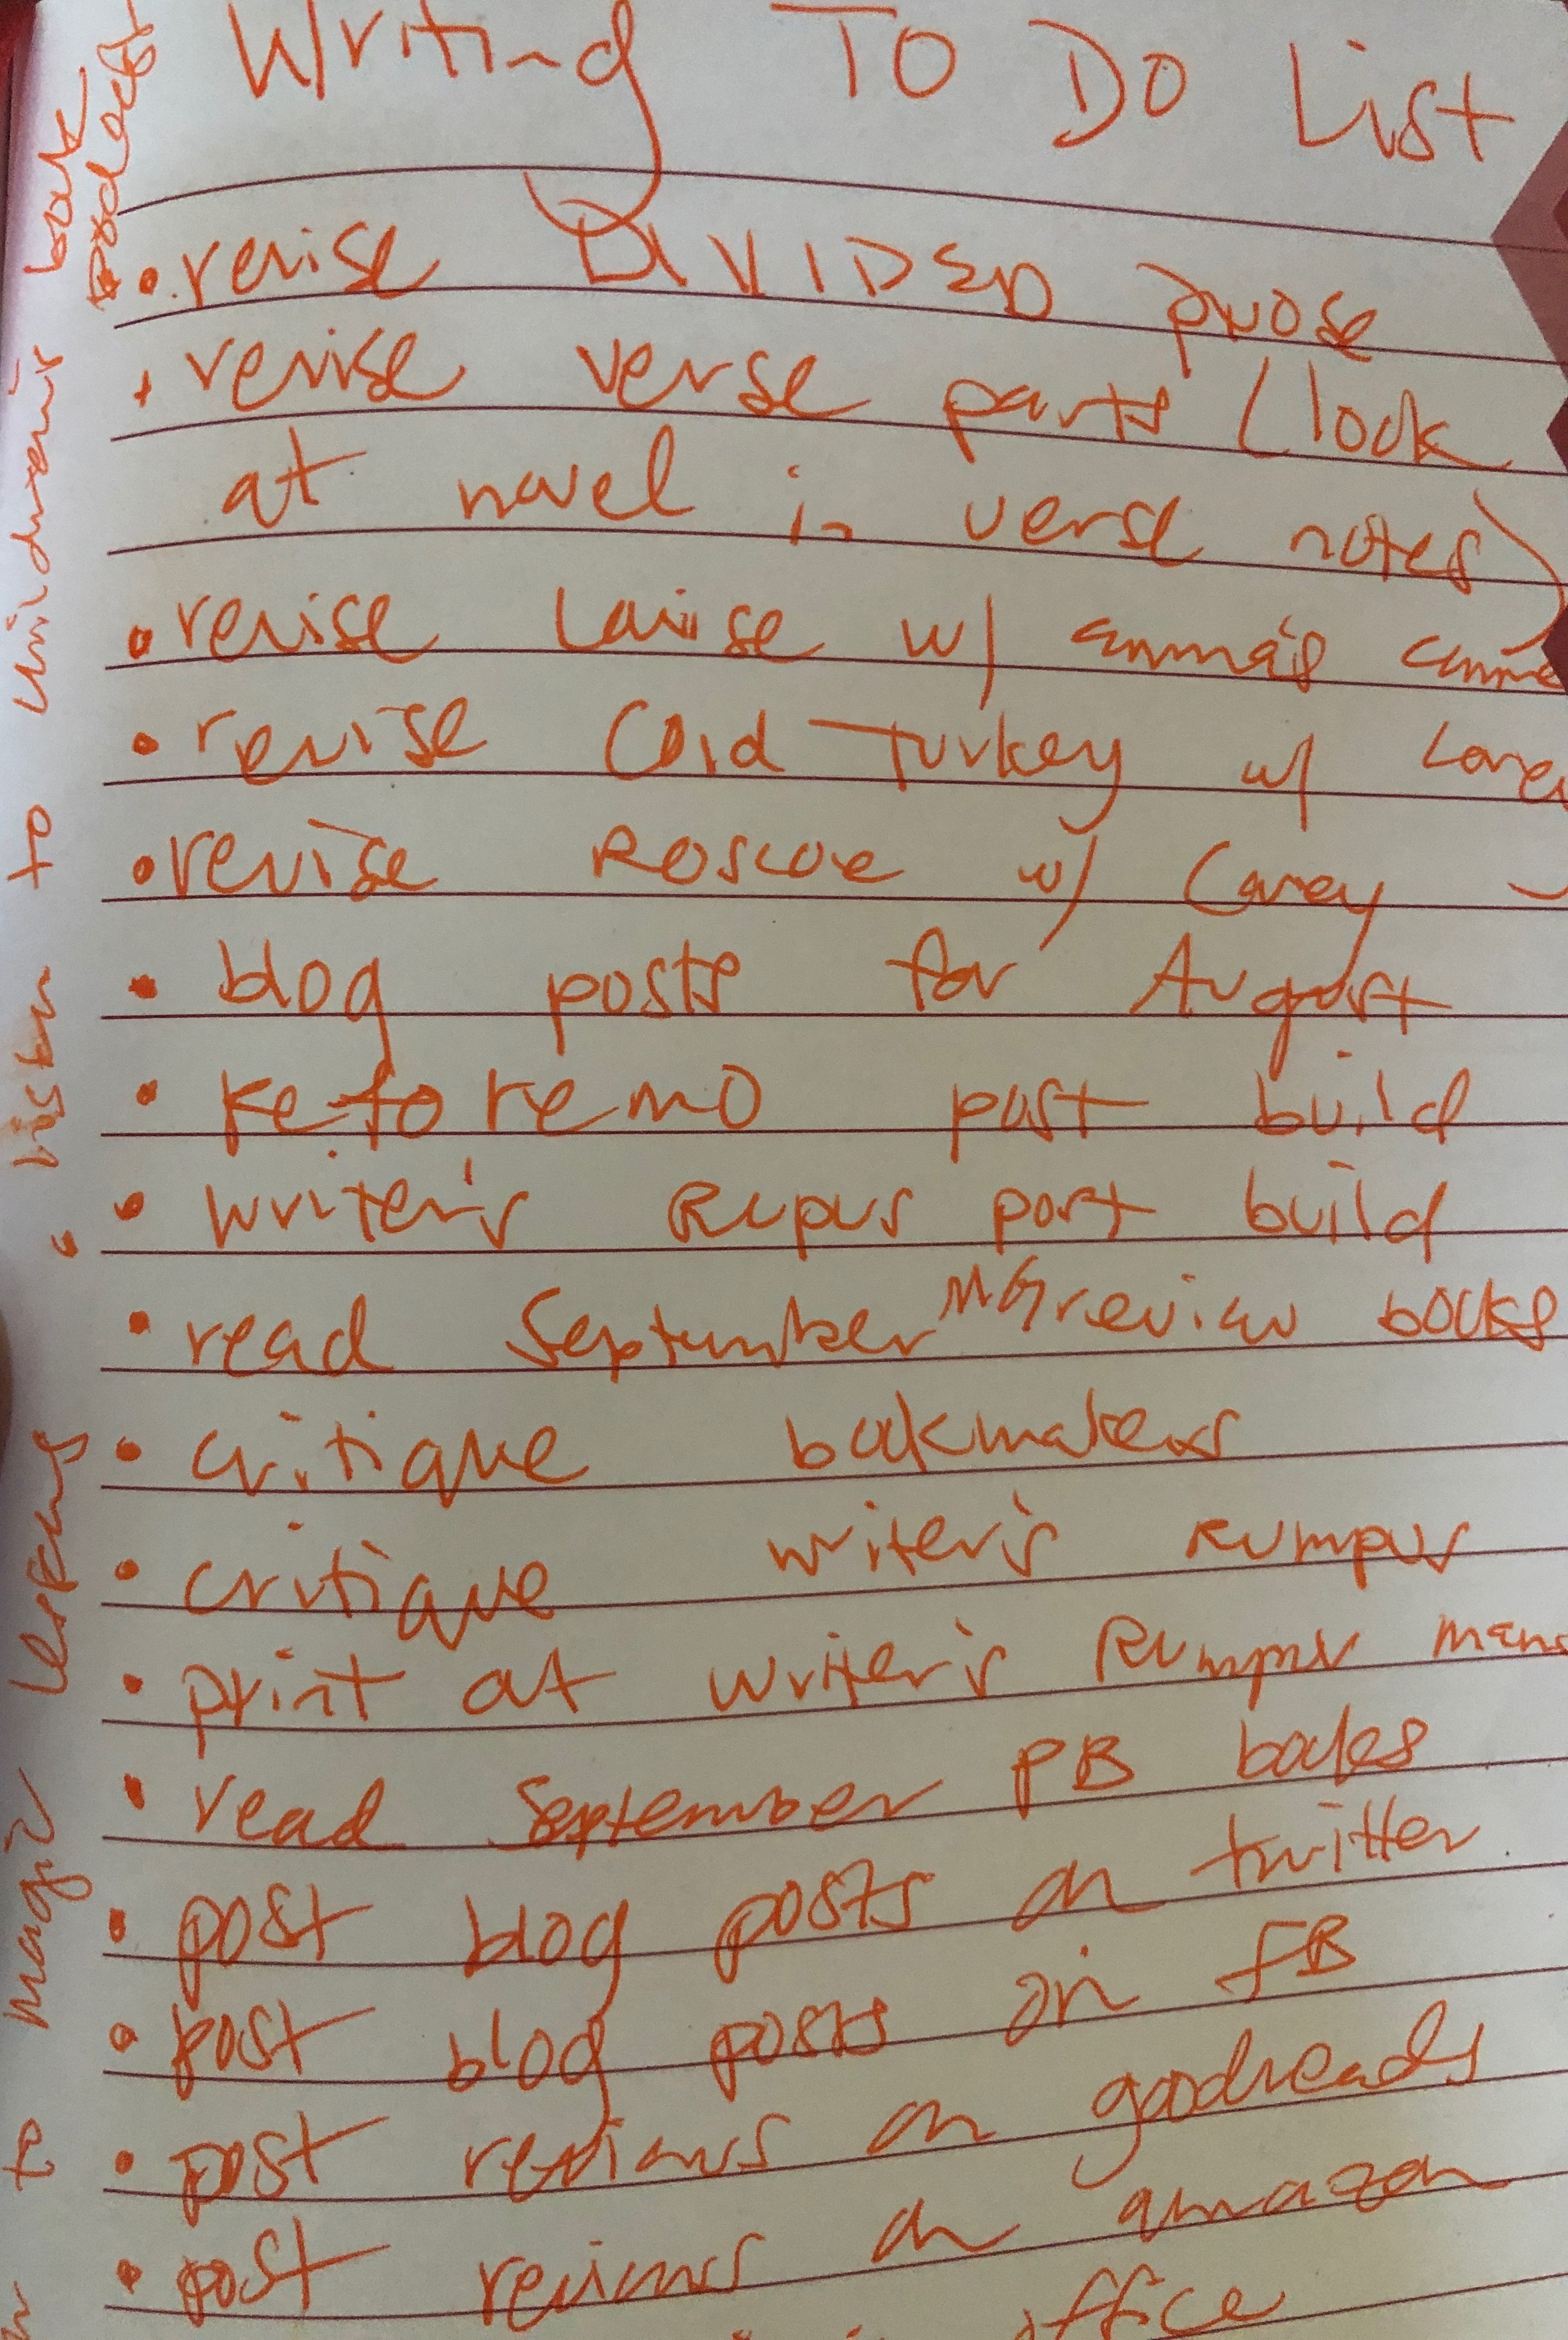 Writing To Do List
• revise DIVIDED prose
• revise verse parts (look
at novel in verse notes)
• revise Louise w/ Emma's comme
• revise Cold Turkey w/
• revise Roscoe w/ Carey
• blog posts for August
• ketoremo post build
• writer's Rupus post build
• read September MG review books
• critique bookmakers
• critique writer's Rumpus
• print at writer's Rumpus
• read September PB books
• post blog posts on twitter
• post blog posts on FB
• post reviews on goodreads
• post reviews on amazon
office
to magic lessons
• listen to children's book
podcast